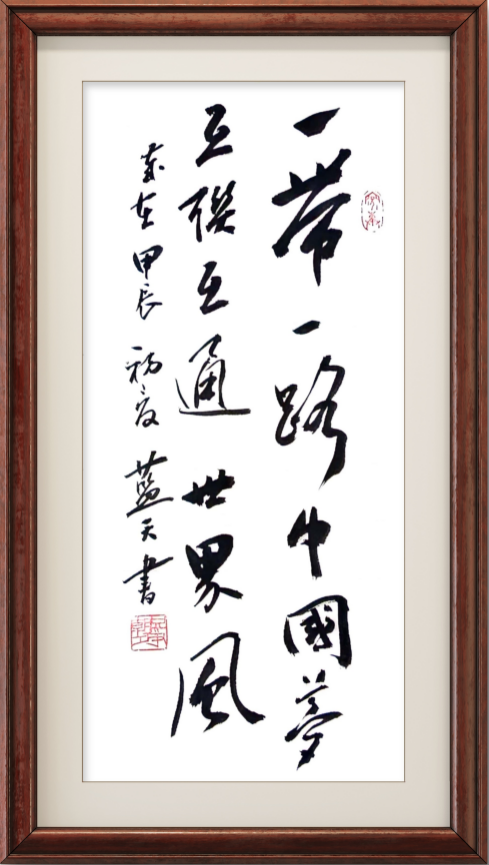 一带一路中國夢
互聯互通世界風
歲在甲辰初夏藍天書